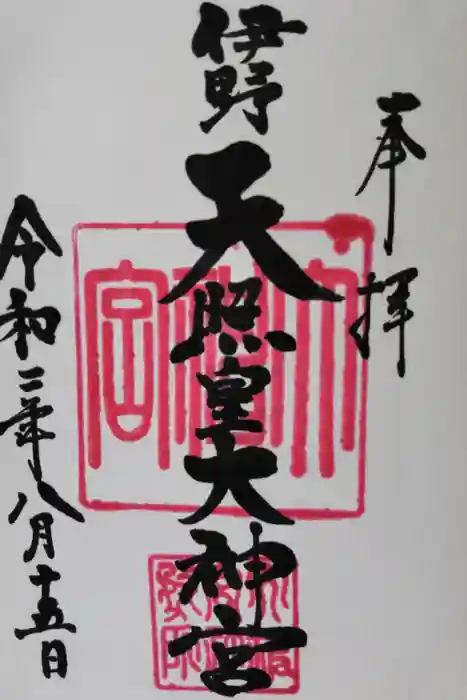 奉拝
伊野天照皇大神宮
令和二年八月十五日